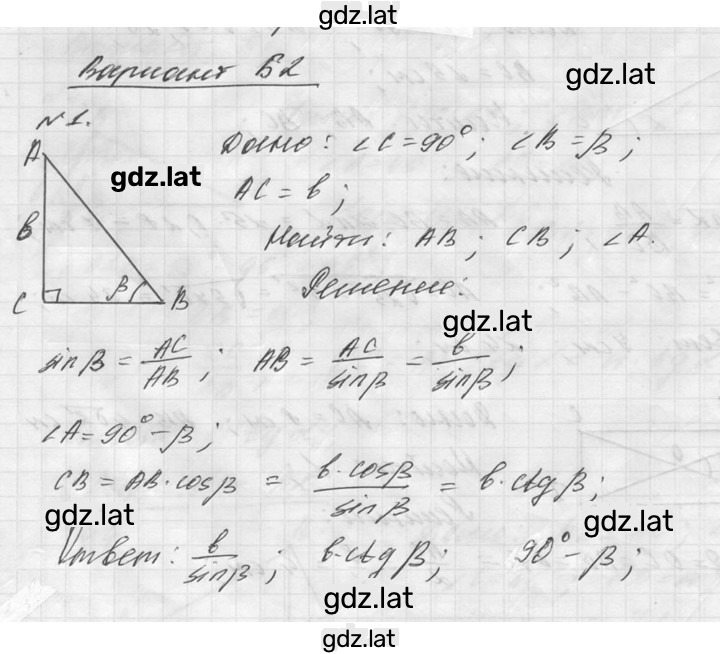 gdz.lat
Вариант Б2
gdz.lat
№1.
A
Дано: ∠C = 90°; ∠B = β;
gdz.lat
AC = b;
в
Найти: AB; CB; ∠A.
C
β
B
Решение:
gdz.lat
sin β = AC/AB; AB = AC/sin β = в/sin β;
∠A = 90° - β;
CB = AB · cos β = в · cos β/sin β = в · ctg β;
gdz.lat
gdz.lat
Ответ: в/sin β; в · ctg β; 90° - β;
gdz.lat
gdz.lat